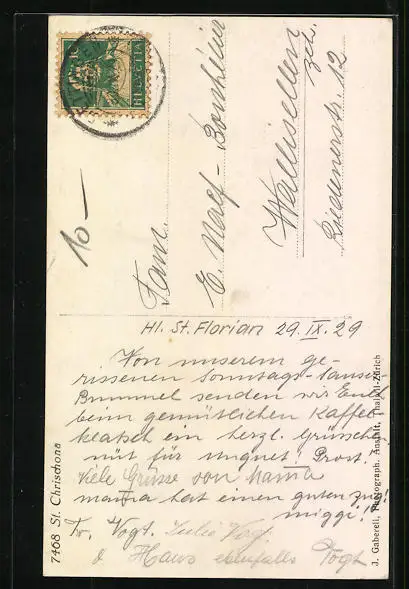 HELVETIA
10 —
Fam.
E. Naef-
Wallisellen
Zch.
12
Hl. St. Florian 29. IX. 29
Von unserem ge-
rissenen Sonntags-
Bummel senden wir Euch
beim gemütlichen Kaffee
klatsch ein herzl. Grüssche
nüt für ungnet Prost.
Viele Grüsse von Mamma
mamma hat einen guten zug!
miggi!
Fr. Vogt. Julie Vogt
& Hans ebenfalls Vogt
7468 St. Chrischona
J. Gaberell, Photograph. Anstalt, Thalwil-Zürich